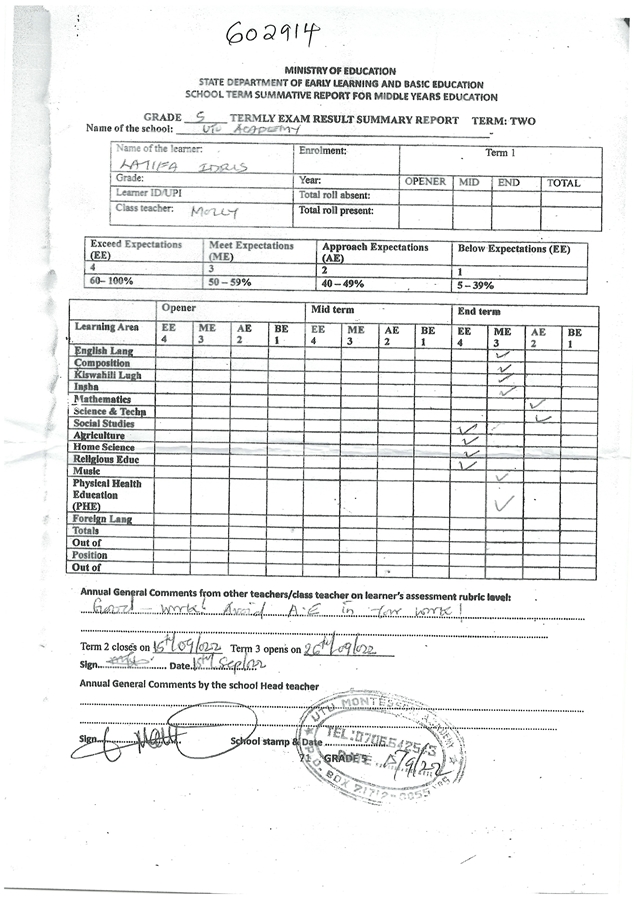 602914
MINISTRY OF EDUCATION
STATE DEPARTMENT OF EARLY LEARNING AND BASIC EDUCATION
SCHOOL TERM SUMMATIVE REPORT FOR MIDDLE YEARS EDUCATION
GRADE 5 TERMLY EXAM RESULT SUMMARY REPORT TERM: TWO
Name of the school: UTU ACADEMY
Name of the learner: Enrolment: Term 1
LATIFA IDRIS
Grade: Year: OPENER MID END TOTAL
Learner ID/UPI Total roll absent:
Class teacher: Molly Total roll present:
Exceed Expectations (EE) Meet Expectations (ME) Approach Expectations (AE) Below Expectations (EE)
4 3 2 1
60– 100% 50 – 59% 40 – 49% 5 – 39%
Opener Mid term End term
Learning Area EE 4 ME 3 AE 2 BE 1 EE 4 ME 3 AE 2 BE 1 EE 4 ME 3 AE 2 BE 1
English Lang ✓
Composition ✓
Kiswahili Lugh ✓
Insha ✓
Mathematics ✓
Science & Techn ✓
Social Studies ✓
Agriculture ✓
Home Science ✓
Religious Educ ✓
Music ✓
Physical Health
Education
(PHE) ✓
Foreign Lang
Totals
Out of
Position
Out of
Annual General Comments from other teachers/class teacher on learner's assessment rubric level:
Good work! Avoid A.E in your work!
Term 2 closes on 15th/09/022 Term 3 opens on 26th/09/022
Sign. Date. 15th Sep/022
Annual General Comments by the school Head teacher
Sign. School stamp & Date
UTU MONTESSORI ACADEMY
GRADE 5
P.O. BOX 21712-